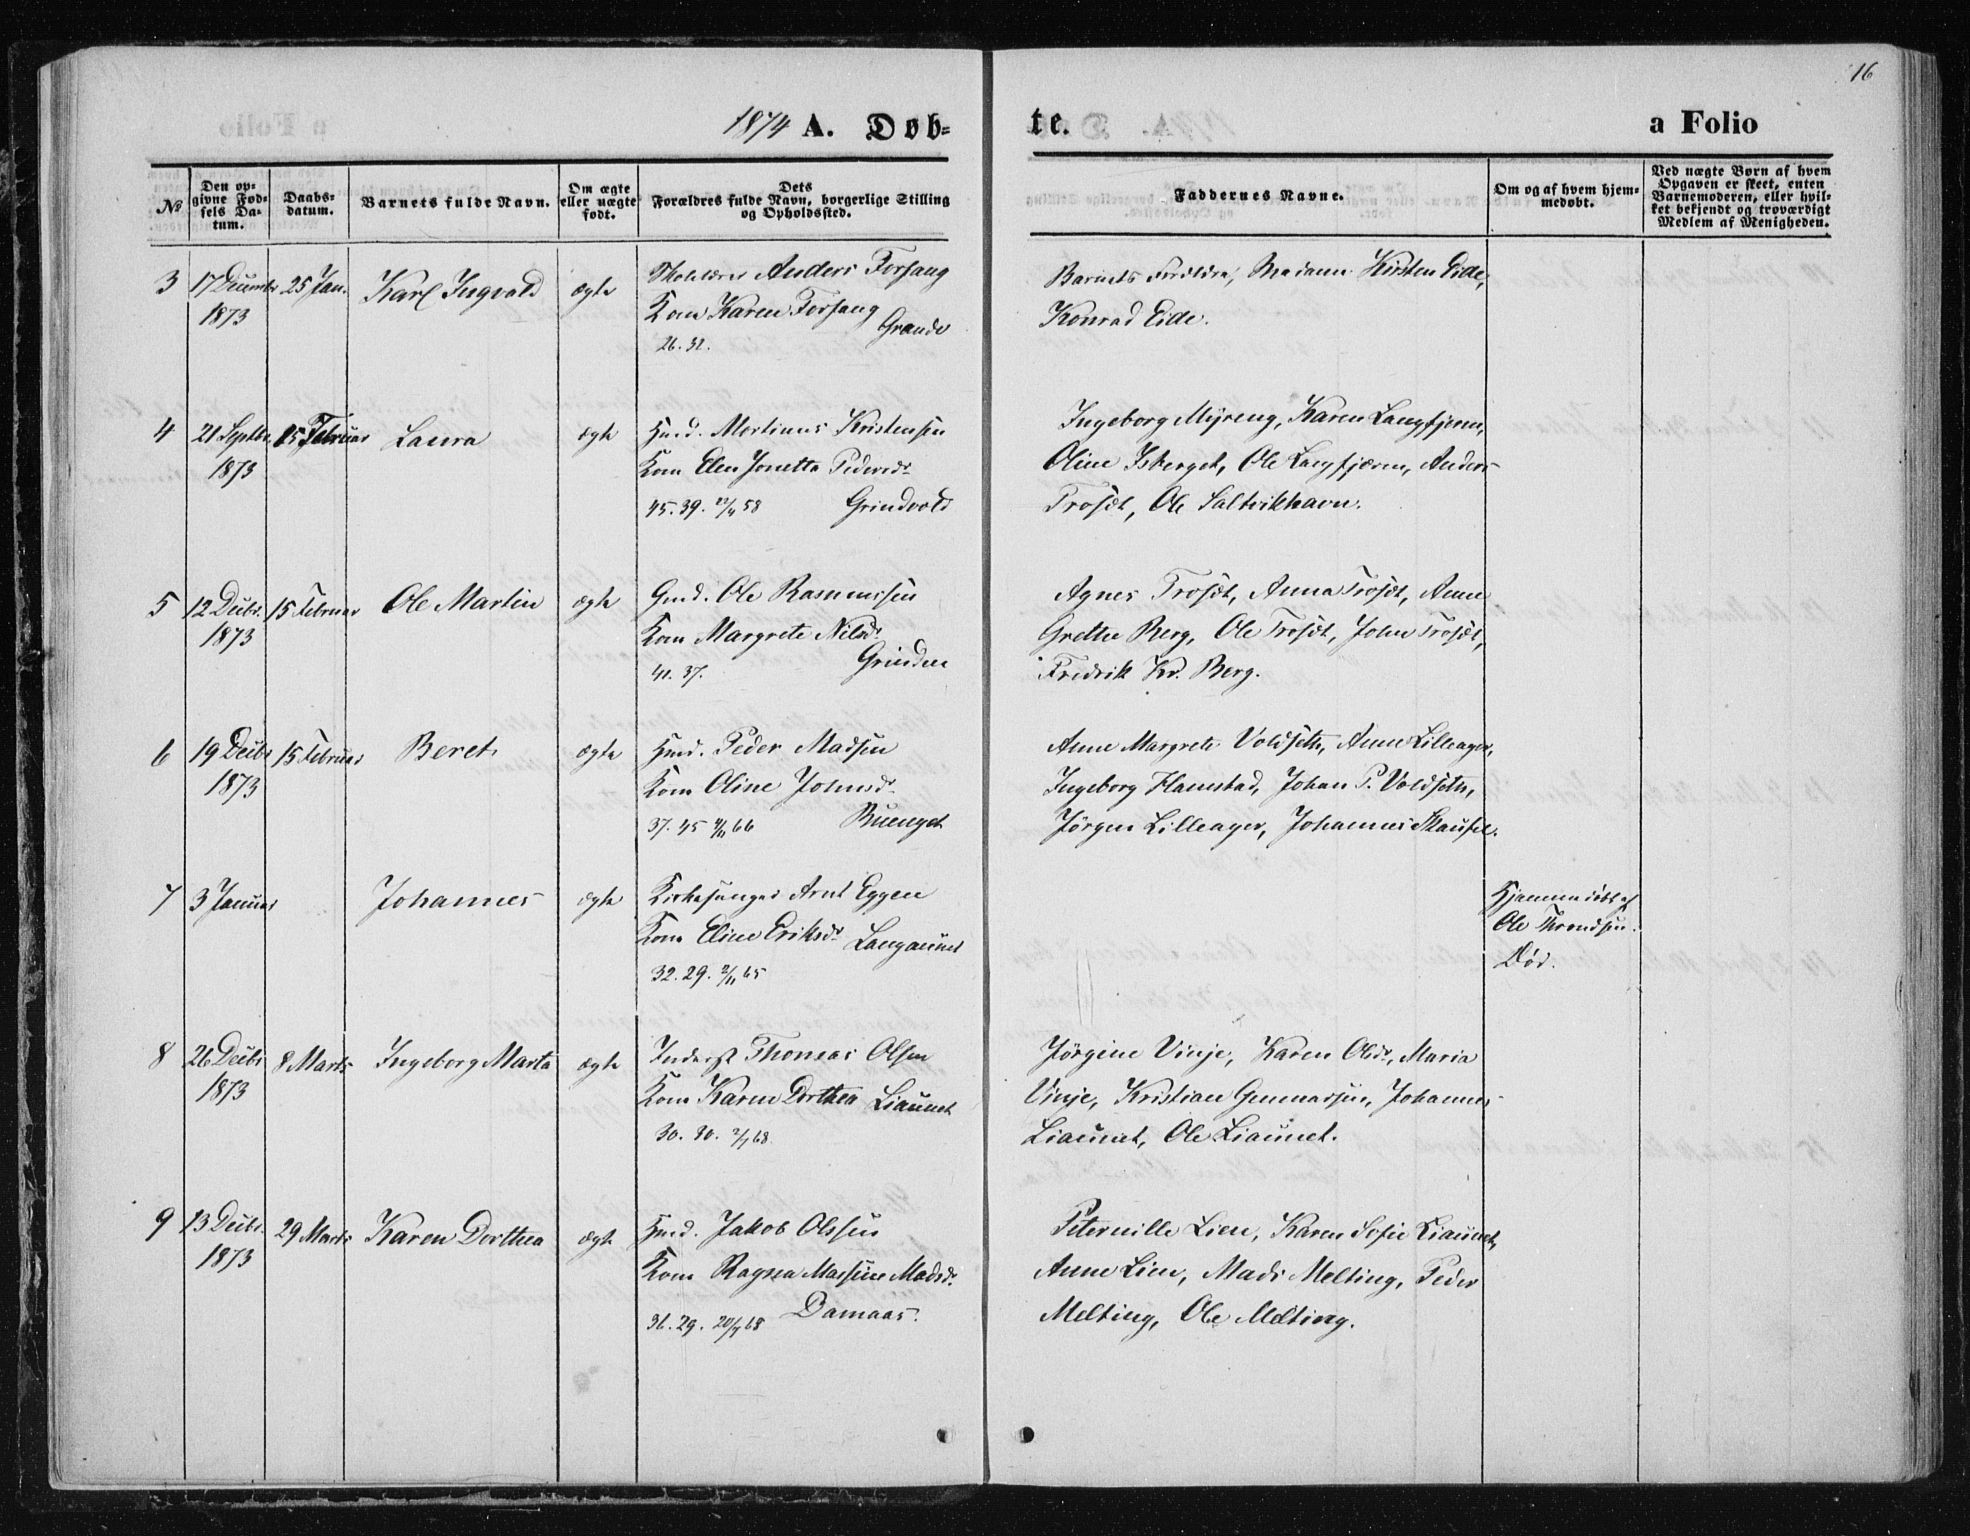 16
1874 A. Døb-
te.
a Folio
No
Den opgivne Fødsels Datum.
Daabsdatum.
Barnets fulde Navn.
Om ægte eller uægte født.
Dets Forældres fulde Navn, borgerlige Stilling og Opholdssted.
Faddernes Navne.
Om og af hvem hjemmedøbt.
Ved uægte Børn af hvem Opgaven er skeet, enten Barnemoderen, eller hvilket bekjendt og troværdigt Medlem af Menigheden.
3 17 Decembr 25 Jan. Karl Ingvald ægte Anders Forfang
1873 Kone Karen Forfang
Grande
26. 32.
Barnets Forældre, Madame Kirsten Eide,
Konrad Eide.
4 21 Septbr 15 Februar Laura ægte Hmd. Martinus Kristensen
1873 Kone Elen Jonetta Pedersdr
45. 39. 58 Grindvold
Ingeborg Myreng, Karen Langfjæren,
Oline Isberget, Ole Langfjæren, Anders
Trøset, Ole Saltvikhavn.
5 12 Decbr. 15 Februar Ole Martin ægte Gmd. Ole Rasmussen
1873 Kone Margrete Nilsdr
41. 37. Grinden
Agnes Trøset, Anna Trøset, Anne
Grethe Berg, Ole Trøset, John Trøset,
Fredrik Kr. Berg.
6 19 Decbr 15 Februar Beret ægte Hmd. Peder Madsen
1873 Kone Oline Johnsdr
37. 45 66 Buenget
Anne Margrete Voldseth, Anne Lilleager,
Ingeborg Hamstad, Johan P. Voldseth,
Jørgen Lilleager, Johannes Skausel.
7 3 Januar Johannes ægte Kirkesanger Arnt Eggen
Kone Eline Eriksdr Langaunet
32. 29. 2/11 65
Hjemmedøbt af
Ole Throndsen.
Død.
8 26 Decbr 8 Marts Ingeborg Marta ægte Inderst Thomas Olsen
1873 Kone Karen Dorthea Liaunet
30. 30. 2/7 68
Jørgine Vinje, Karen Olsdr, Maria
Vinje, Kristian Gunnarsen, Johannes
Liaunet, Ole Liaunet.
9 13 Decbr. 29 Marts Karen Dorthea ægte Hmd. Jakob Olssen
1873 Kone Ragna Massine Madsdr.
36. 29. 20/7 68 Damaas.
Peternille Lien, Karen Sofie Liaunet,
Anne Lien, Mads Melting, Peder
Melting, Ole Melting.